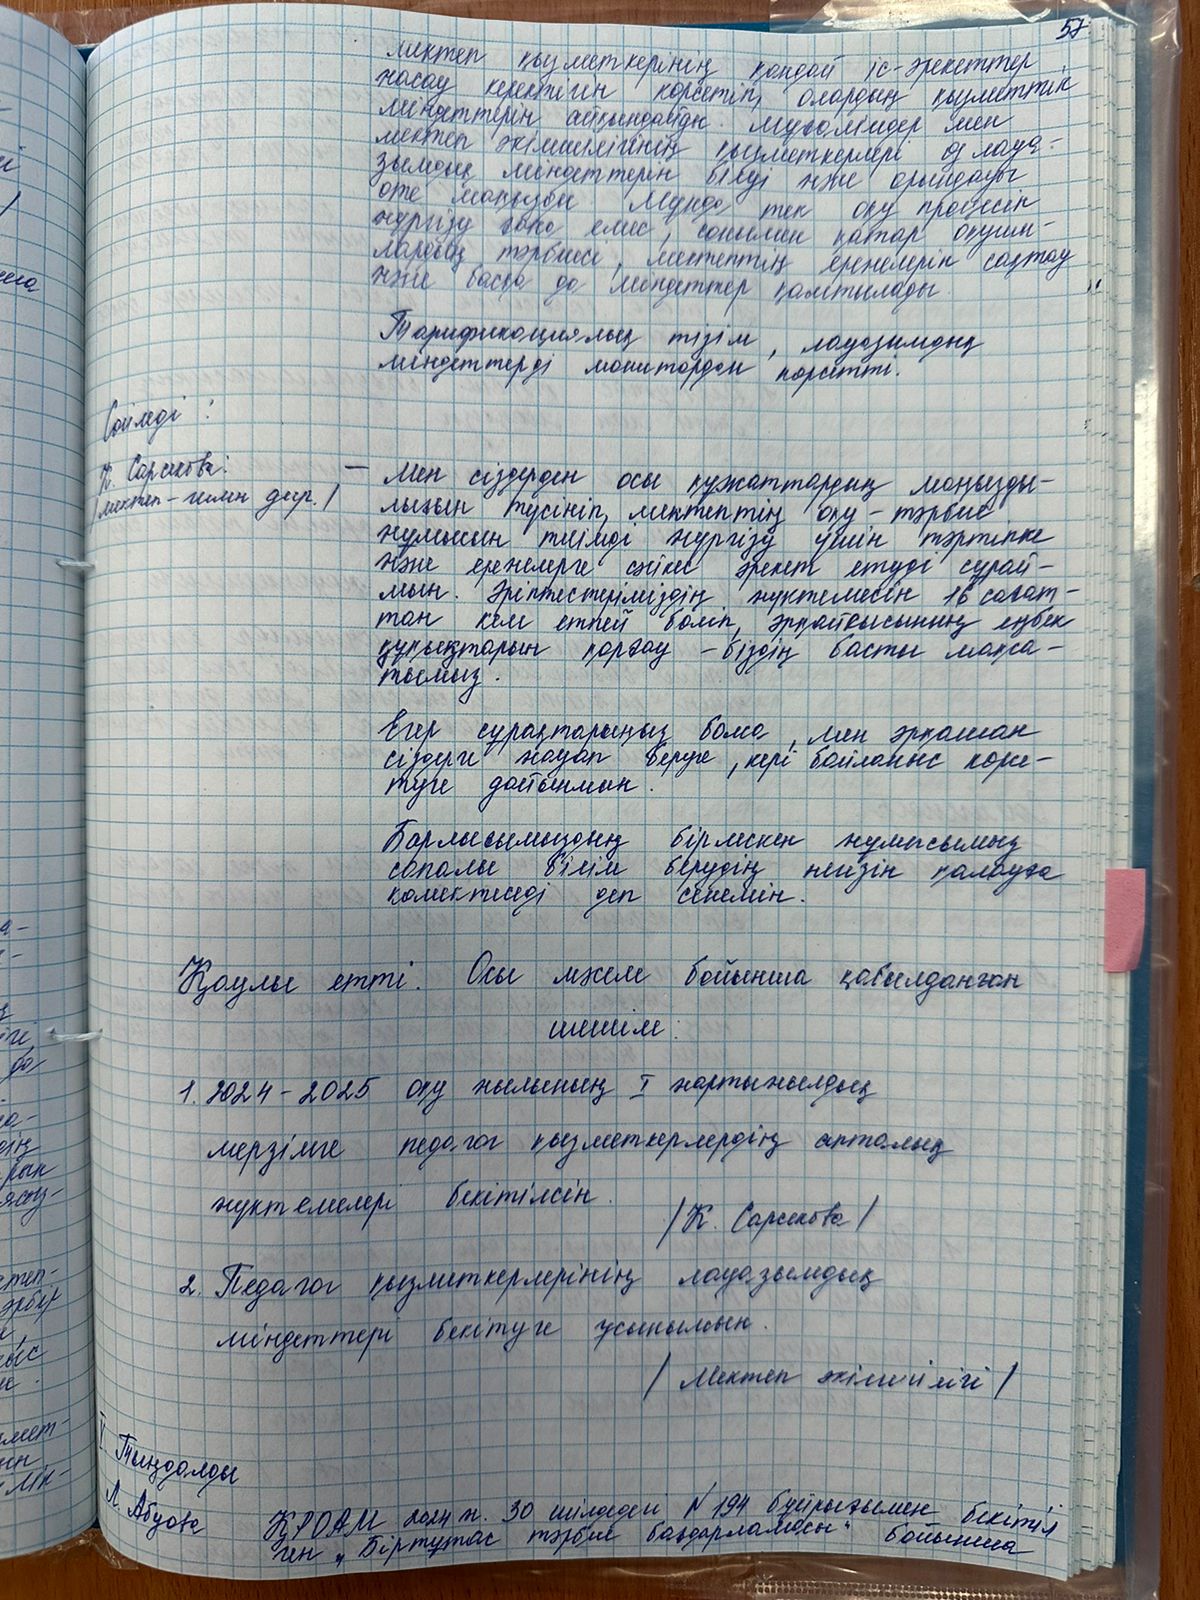 57
мектеп қызметкерінің қандай іс-әрекеттер
жасау керектігін көрсетіп, олардың қызметтік
міндеттерін айқындайды. Мұғалімдер мен
мектеп әкімшілігінің қызметкерлері өз лауа-
зымдық міндеттерін білуі және орындауы
өте маңызды. Мұнда тек оқу процесін
жүргізу ғана емес, сонымен қатар оқушы-
лардың тәрбиесі, мектептің ережелерін сақтау
және басқа да міндеттер қамтылады.
Тарификациялық тізім, лауазымдық
міндеттерді монитордан көрсетті.
Сөйледі:
Қ. Сарсекова:
/мектеп-гимн дир./
– Мен сіздерден осы құжаттардың маңызды-
лығын түсініп, мектептің оқу-тәрбие
жұмысын тиімді жүргізу үшін тәртіпке
және ережелерге сәйкес әрекет етуді сұрай-
мын. Әріптестеріміздің жүктемесін 16 сағат-
тан кем етпей бөліп, әрқайсысының еңбек
құқықтарын қорғау – біздің басты мақса-
тымыз.
Егер сұрақтарыңыз болса, мен әрқашан
сіздерге жауап беруге, кері байланыс көрсе-
туге дайынмын.
Барлығымыздың бірлескен жұмысымыз
сапалы білім берудің негізін қалауға
көмектеседі деп сенемін.
Қаулы етті. Осы мәселе бойынша қабылданған
шешім:
1. 2024-2025 оқу жылының I жартыжылдық
мерзімге педагог қызметкерлердің апталық
жүктемелері бекітілсін.
/Қ. Сарсекова/
2. Педагог қызметкерлерінің лауазымдық
міндеттері бекітуге ұсынылсын.
/Мектеп әкімшілігі/
V Тыңдалды
Л. Абуова
ҚРОАМ 2024 ж. 30 шілдедегі №194 бұйрығымен бекітіл
ген „Біртұтас тәрбие бағдарламасы" бойынша